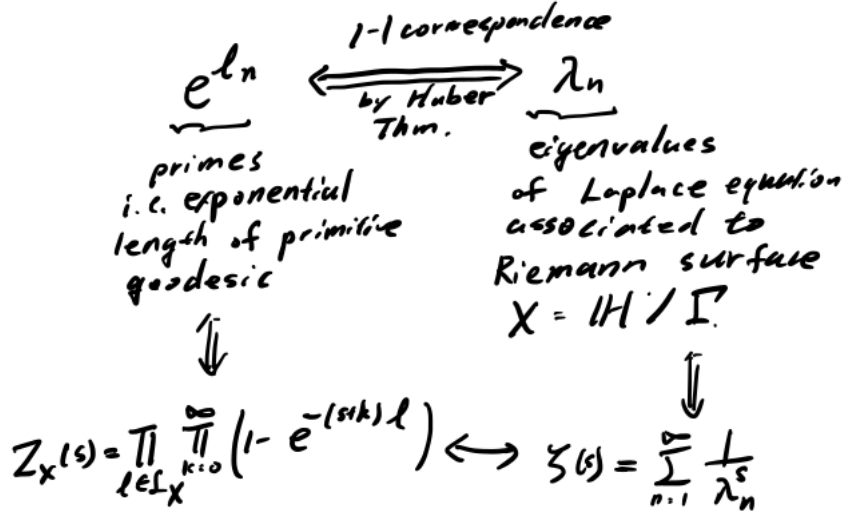 1-1 correspondence
e^{l_n} ⟺ λ_n
by Huber
Thm.
primes
i.e. exponential
length of primitive
geodesic
eigenvalues
of Laplace equation
associated to
Riemann surface
X = ℍ / Γ.
Z_X(s) = ∏_{l∈L_X} ∏_{k=0}^{∞} (1 - e^{-(s+k)l}) ⟷ ζ(s) = ∑_{n=1}^{∞} 1/λ_n^s